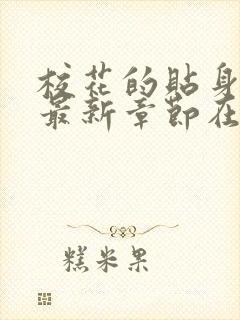 校花的贴身
最新章节在
糕米果